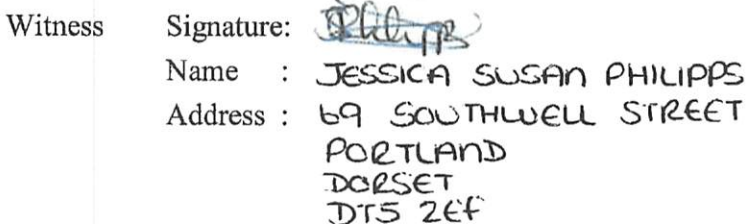 Witness Signature: JPhilipps
Name : JESSICA SUSAN PHILIPPS
Address : 69 SOUTHWELL STREET
PORTLAND
DORSET
DT5 2EF